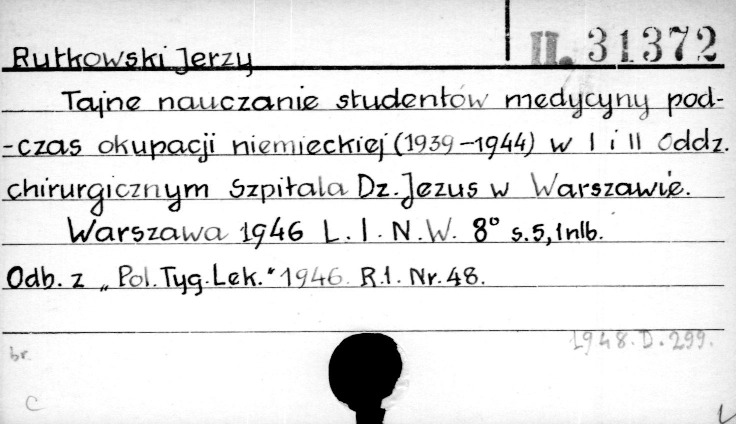 II. 31372
Rutkowski Jerzy
Tajne nauczanie studentów medycyny pod-
-czas okupacji niemieckiej (1939-1944) w I i II Oddz.
chirurgicznym Szpitala Dz. Jezus w Warszawie.
Warszawa 1946 L. I. N. W. 8° s. 5, 1 nlb.
Odb. z „Pol. Tyg. Lek." 1946. R. 1. Nr. 48.
1948. D. 299.
br.
C